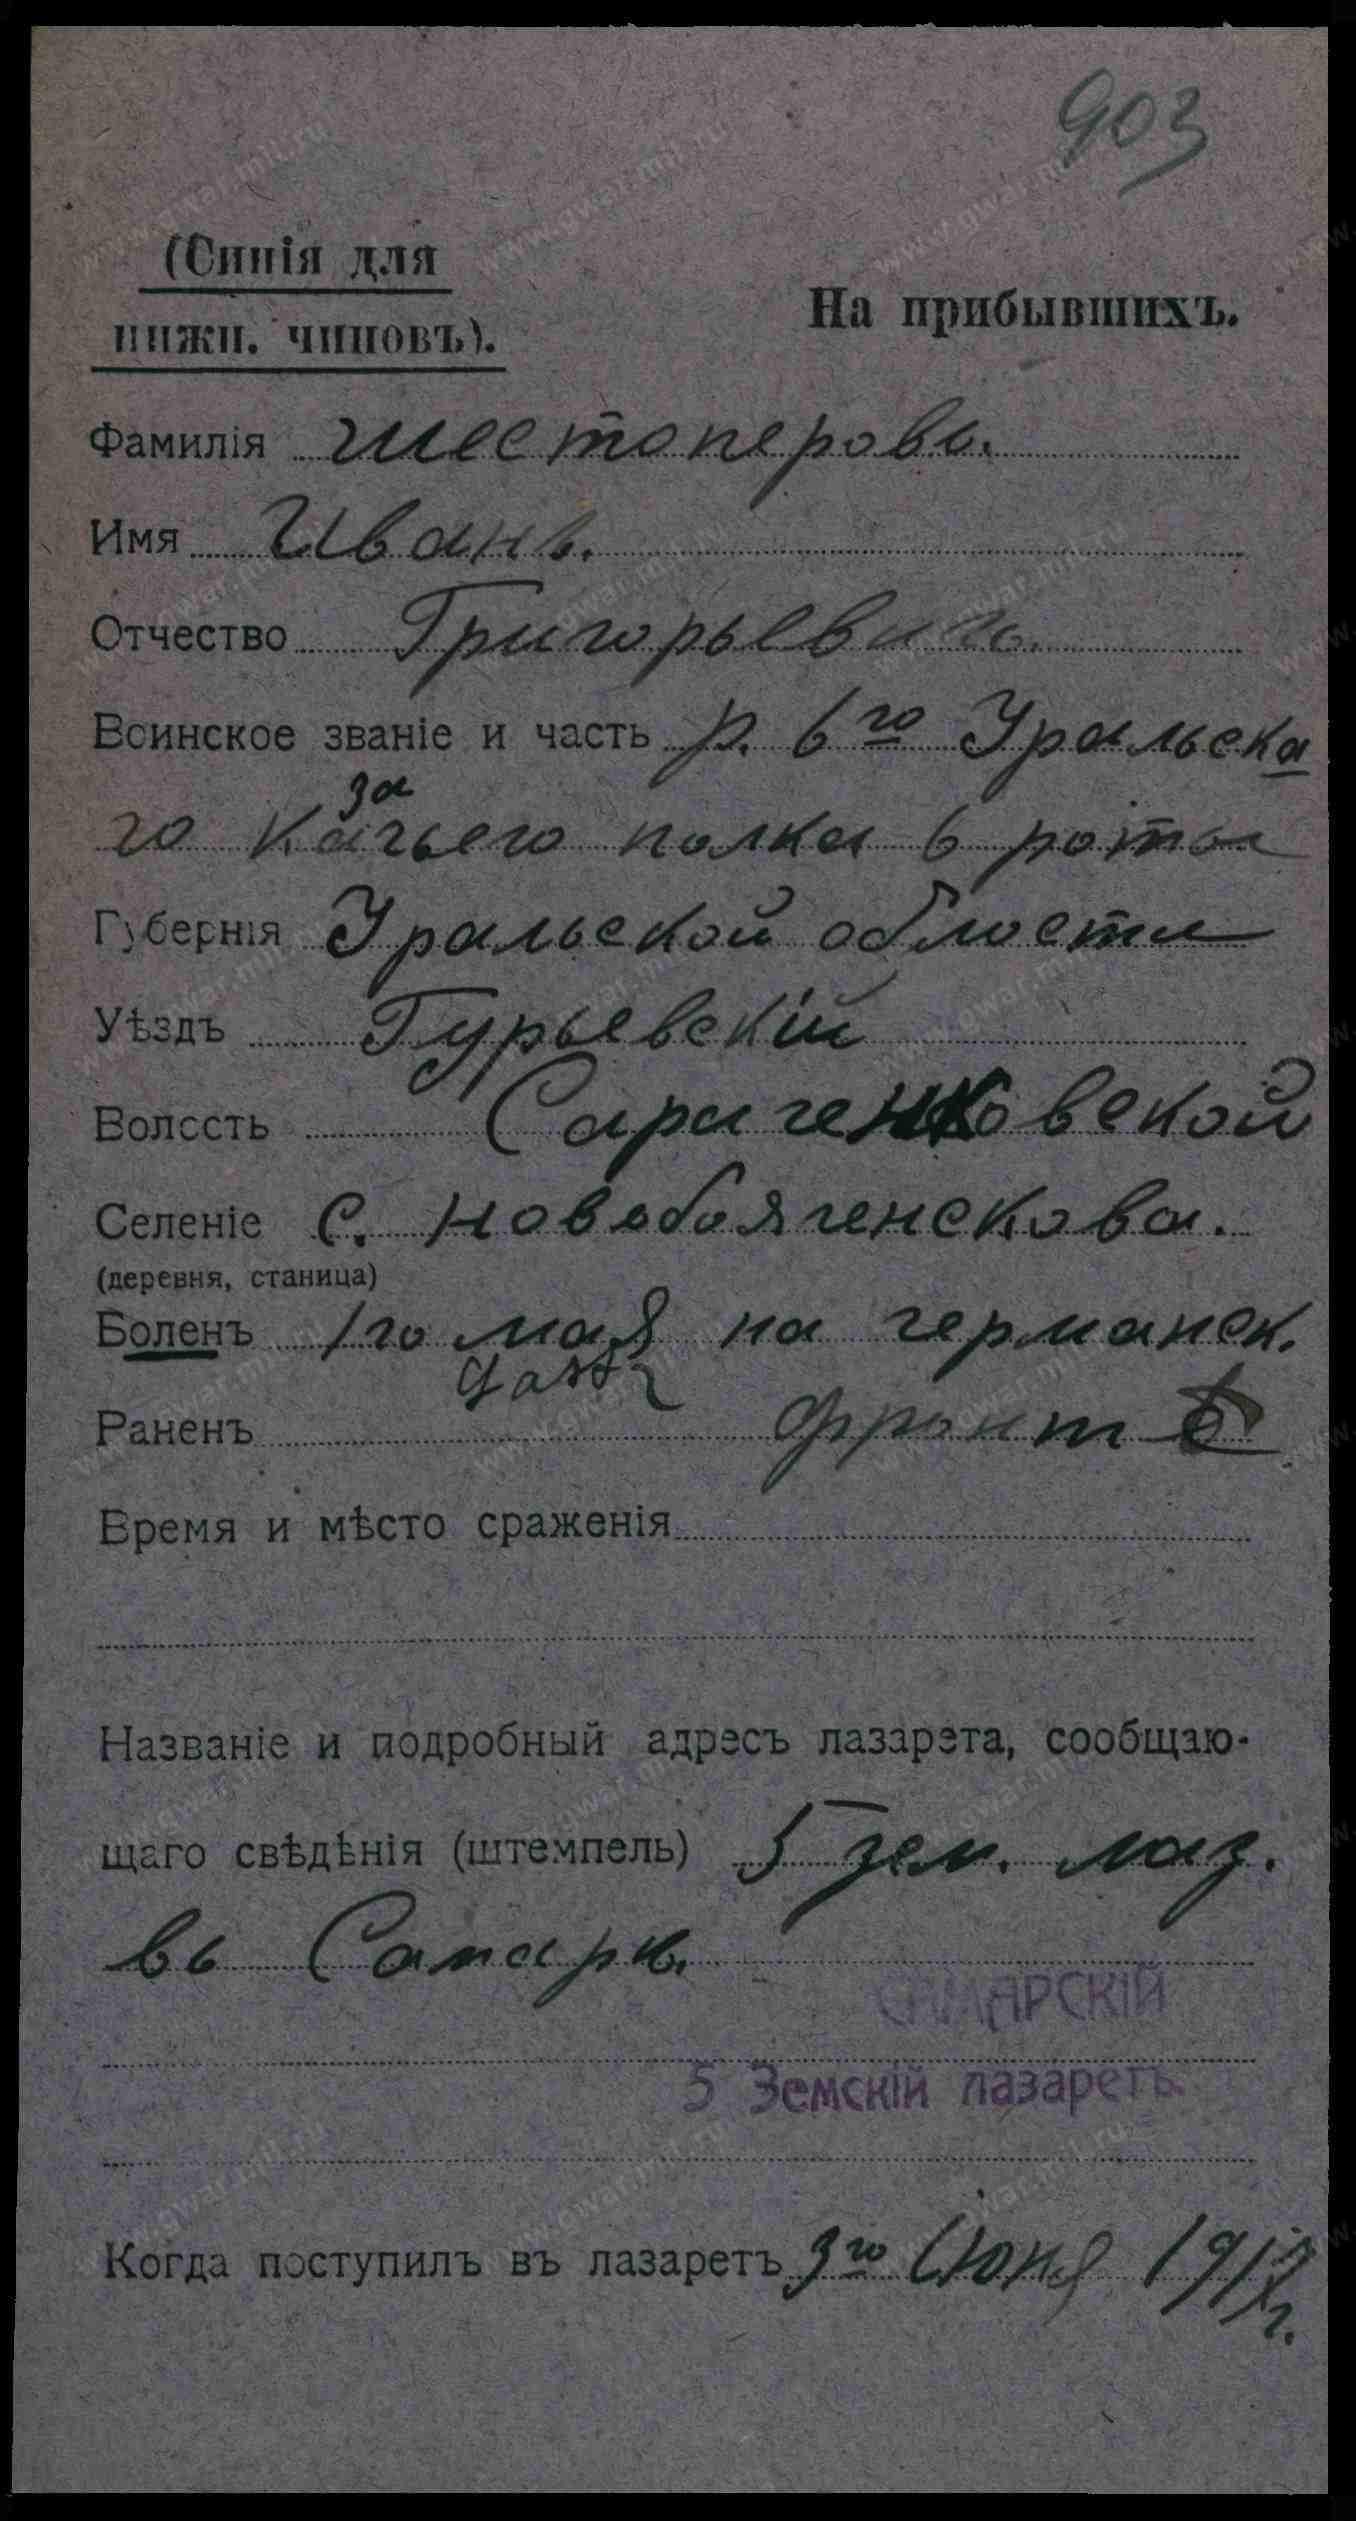 903
(Синія для
нижн. чиновъ).
На прибывшихъ.
Фамилія Шестоперовъ.
Имя Иванъ.
Отчество Григорьевичъ.
Воинское званіе и часть р. 6го Уральска
го казачьего полка 6 роты
Губернія Уральской области
Уѣздъ Гурьевскій
Волость
Селеніе С. новобоягенскова.
(деревня, станица)
Боленъ 1го мая на германск.
Раненъ фронтѣ
Время и мѣсто сраженія
Названіе и подробный адресъ лазарета, сообщаю-
щаго свѣдѣнія (штемпель) 5 зем. лаз.
въ Самарѣ.
САМАРСКІЙ
5 Земскій лазаретъ.
Когда поступилъ въ лазаретъ 3го Іюня 1917г.
www.gwar.mil.ru